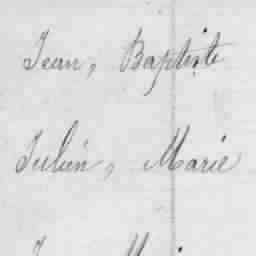 Jean, Baptiste
Julien, Marie